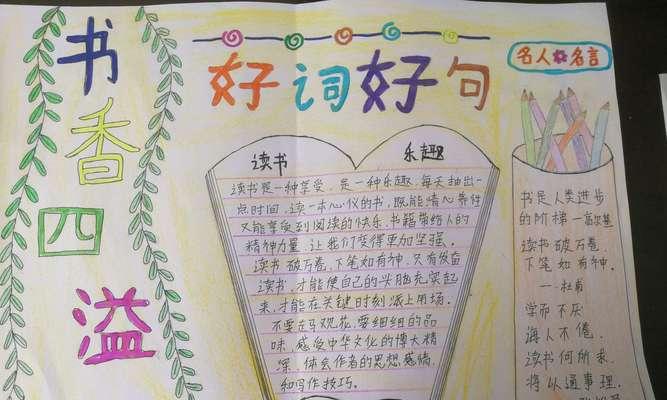 书香四溢
好词好句
名人名言
读书 乐趣
读书是一种享受,是一种乐趣,每天抽出一
点时间,读一本心仪的书,既能情心养性
又能享受到阅读的快乐,书籍带给人的
精神力量,让我们变得更加坚强。
读书破万卷,下笔如有神,只有发奋
读书,才能使自己的头脑充实起
来,才能在关键时刻派上用场。
不要走马观花,要细细的品
味,感受中华文化的博大精
深,体会作者的思想感情
和写作技巧。
书是人类进步
的阶梯—高尔基
读书破万卷,
下笔如有神。
——杜甫
学而不厌
诲人不倦。
读书何所求
将以通事理。